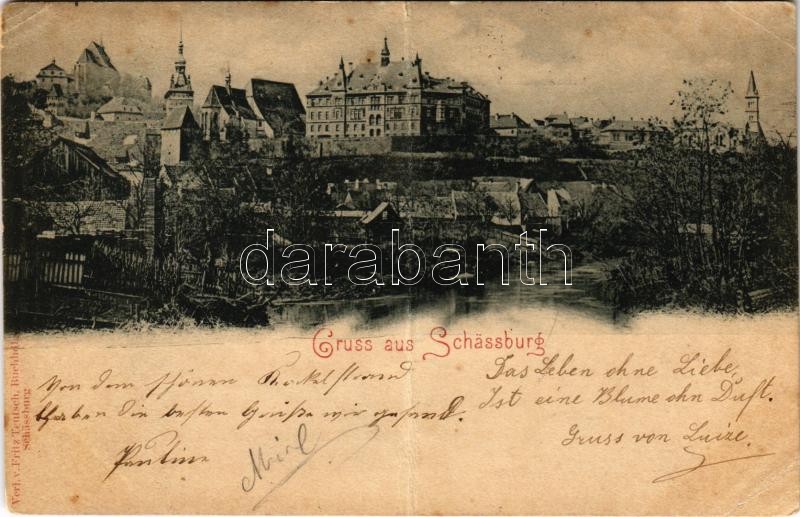 darabanth
Gruss aus Schässburg
Das Leben ohne Liebe,
Ist eine Blume ohn Duft.
Gruss von Luize.
Von dem schönen Kokelstrand
haben die besten Grüße wir gesend.
Pauline
Verl. v. Fritz Teutsch, Buchhdlg.
Schässburg